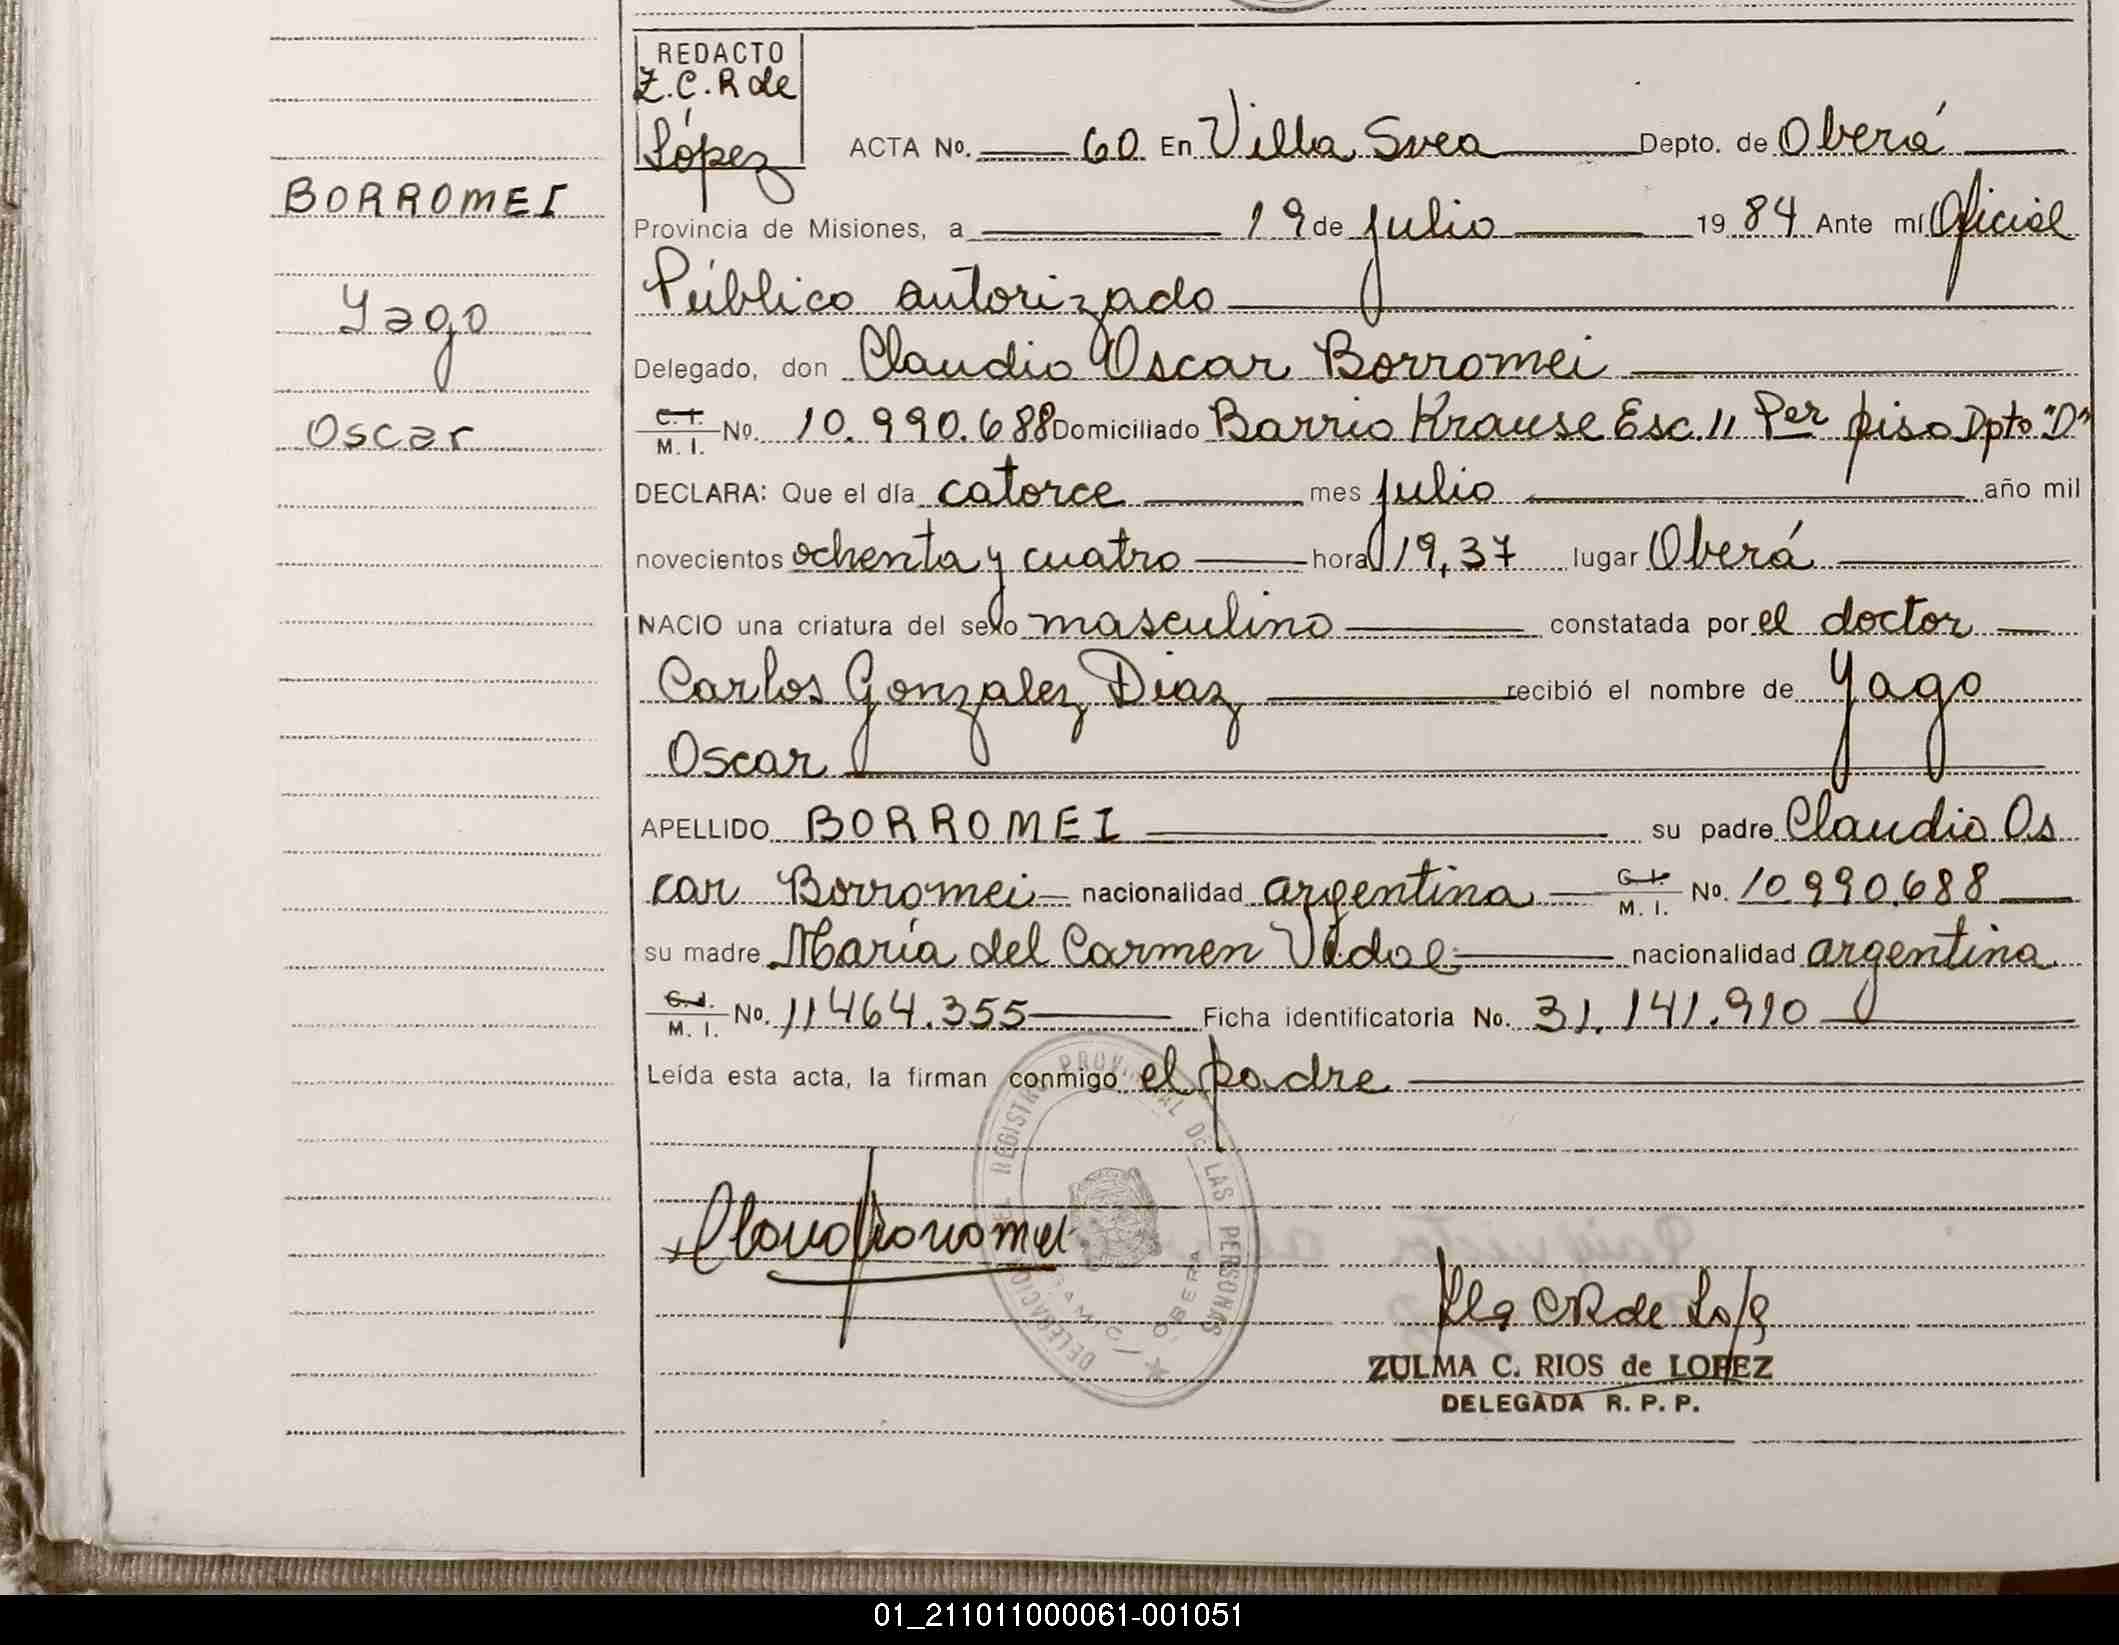 REDACTO
Z.C.R de
López
ACTA No. 60 En Villa Svea Depto. de Oberá
BORROMEI
Provincia de Misiones, a 19 de julio 1984 Ante mí Oficial
Público autorizado
Yago
Delegado, don Claudio Oscar Borromei
Oscar
C. I. M. I. No. 10.990.688 Domiciliado Barrio Krause Esc. 11 Per piso Dpto "D"
DECLARA: Que el día catorce mes julio año mil
novecientos ochenta y cuatro hora 19,37 lugar Oberá
NACIO una criatura del sexo masculino constatada por el doctor
Carlos Gonzalez Diaz recibió el nombre de Yago
Oscar
APELLIDO BORROMEI su padre Claudio Os
car Borromei nacionalidad argentina C. I. M. I. No. 10.990.688
su madre María del Carmen Vidal nacionalidad argentina
C. I. M. I. No. 11464.355 Ficha identificatoria No. 31.141.910
Leída esta acta, la firman conmigo el padre
REGISTRO PROVINCIAL DE LAS PERSONAS
DELEGACION
OBERA
CR de López
ZULMA C. RIOS de LOPEZ
DELEGADA R. P. P.
01_211011000061-001051